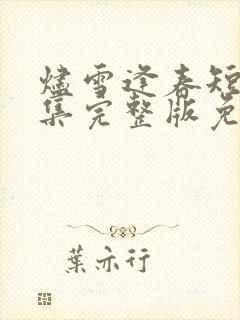 燼雪逢春短
集完整版免
葉亦行